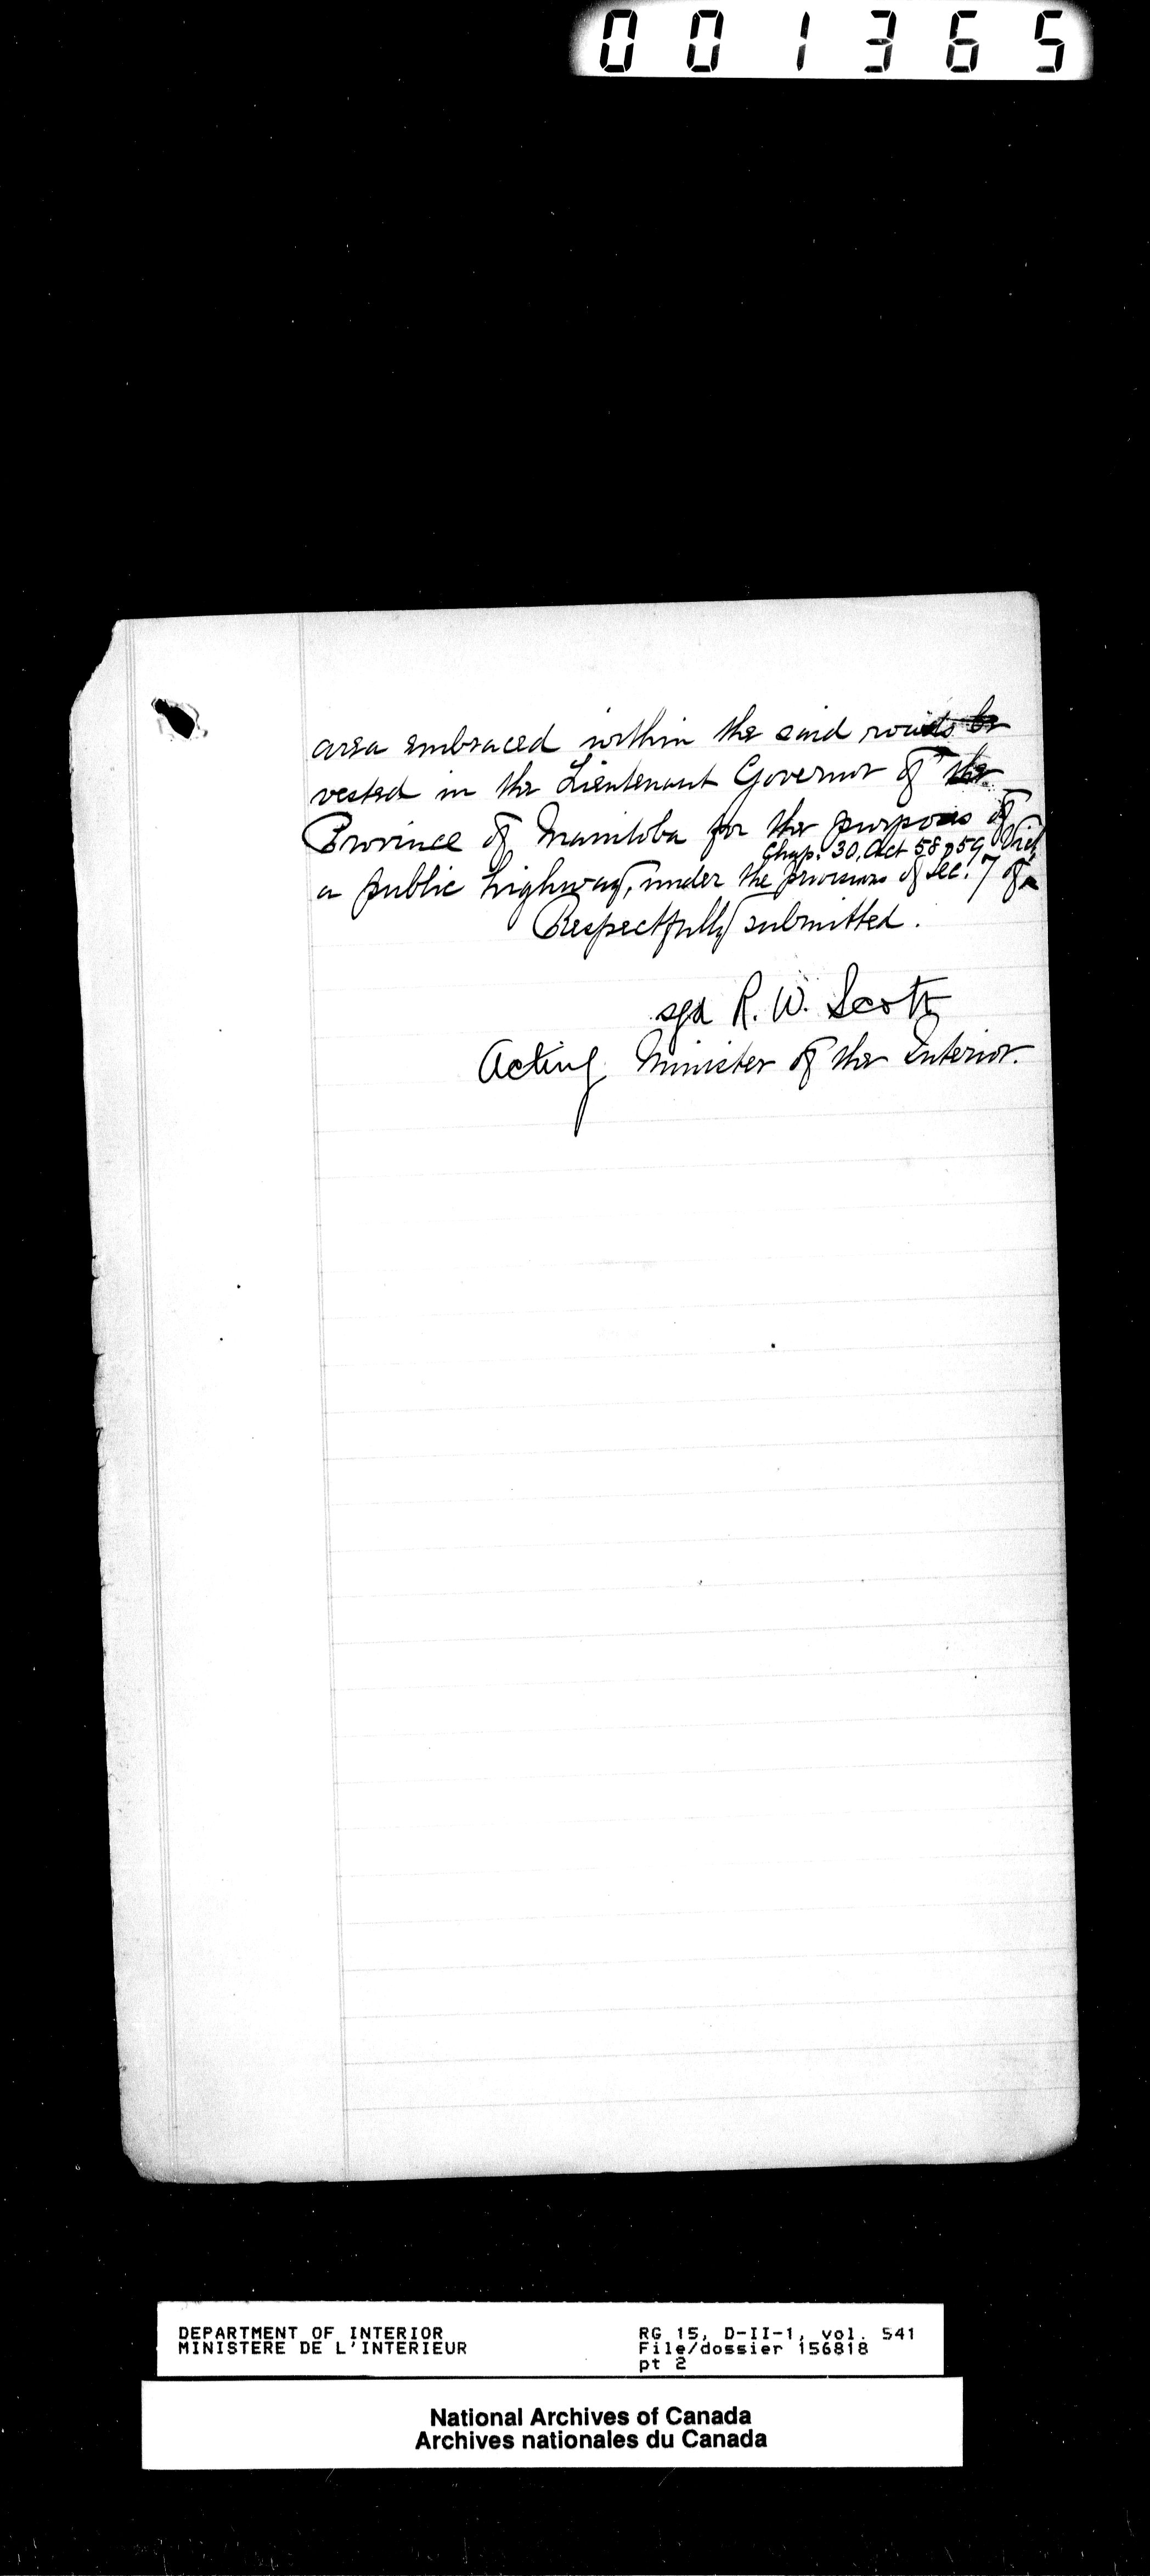 001365
area embraced within the said roads be
vested in the Lieutenant Governor of the
Province of Manitoba for the purposes of
Chap. 30, Act 58 & 59 Vict.
a public highway, under the provisions of Sec. 7 of
Respectfully submitted.
sgd R. W. Scott
Acting Minister of the Interior.
DEPARTMENT OF INTERIOR
MINISTERE DE L'INTERIEUR
RG 15, D-II-1, vol. 541
File/dossier 156818
pt 2
National Archives of Canada
Archives nationales du Canada